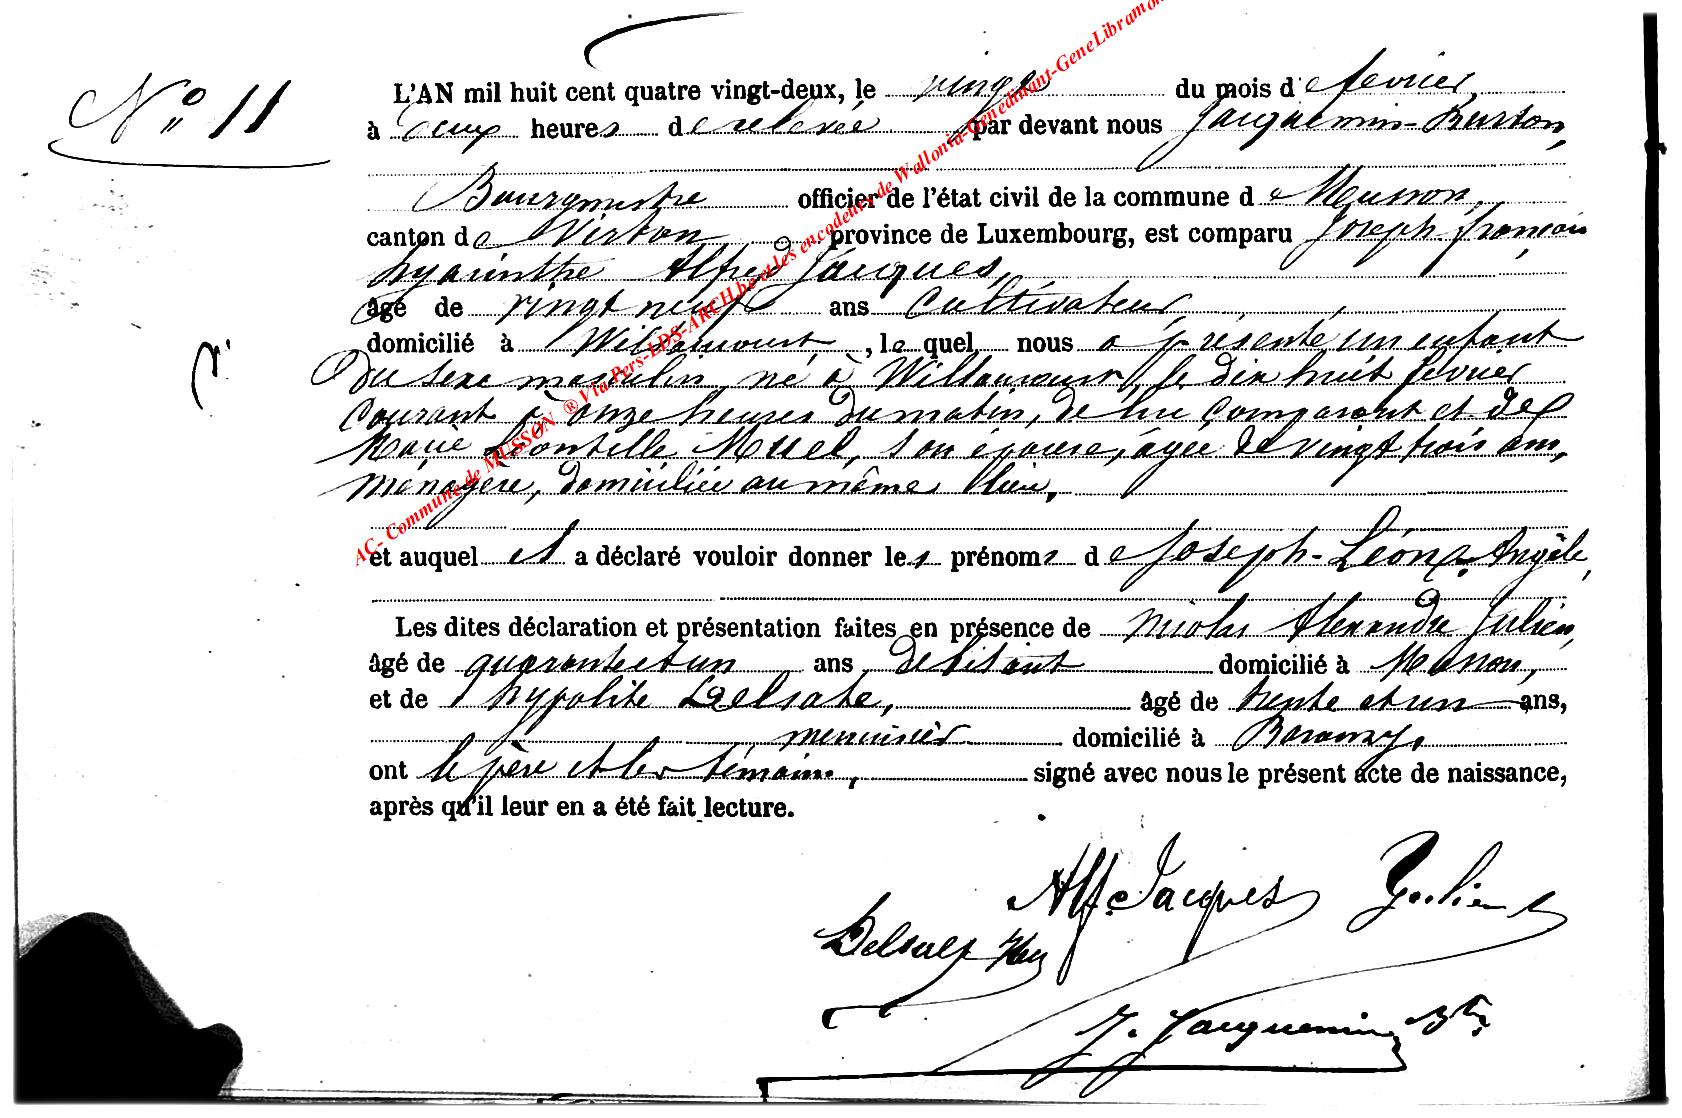 N° 11
L'AN mil huit cent quatre vingt-deux, le vingt du mois de février,
à deux heures de relevée par devant nous Jacquemin-Burton,
Bourgmestre officier de l'état civil de la commune de Musson,
canton de Virton province de Luxembourg, est comparu Joseph françois
hyacinthe Alfred Jacques,
âgé de vingt neuf ans cultivateur
domicilié à Willancourt, le quel nous a présenté un enfant
du sexe masculin, né à Willancourt, le dix huit février
courant à onze heures du matin, de lui comparant et de
Marie Léontille Muel, son épouse, âgée de vingt trois ans,
ménagère, domiciliée au même lieu,
et auquel il a déclaré vouloir donner les prénoms de Joseph-Léon Angèle,
Les dites déclaration et présentation faites en présence de Nicolas Alexandre Julien,
âgé de quarante et un ans débitant domicilié à Musson,
et de hypolite Delsate, âgé de trente et un ans,
menuisier domicilié à Baranzy,
ont le père et les témoins, signé avec nous le présent acte de naissance,
après qu'il leur en a été fait lecture.
Alf. Jacques Julien
J. Jacquemin
AC- Commune de MUSSON ® Via Pers-LDS-ARCH.be et les encodeurs de Wallonia-Genedinant-GeneLibramon